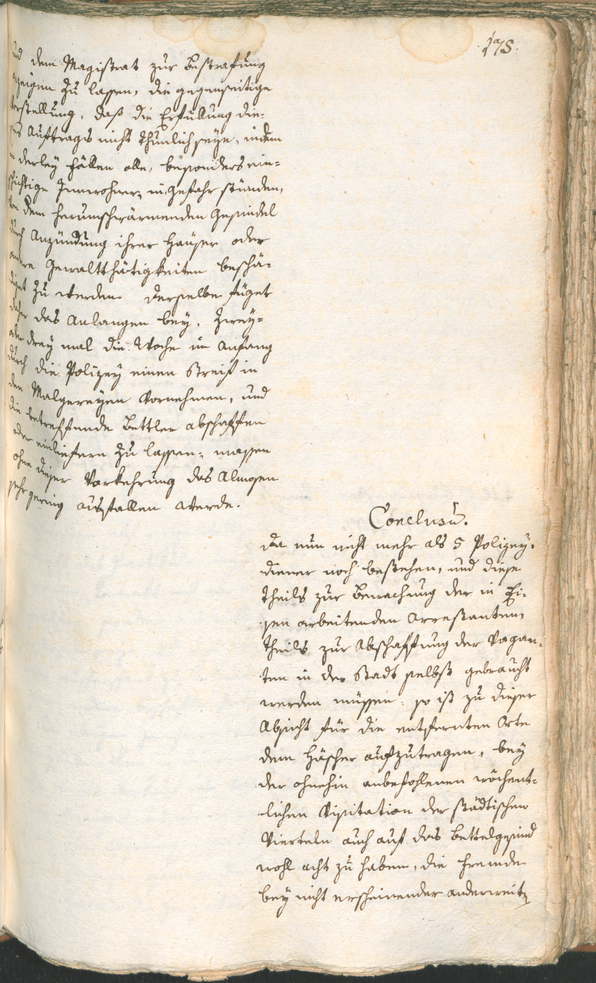 175.
und dem Magistrat zur Bestrafung
anzeigen zu lassen, die gegenseitige
Vorstellung, daß die Erfüllung die-
ses Auftrags nicht thunlich seye, indem
in derley Fällen alle, besonders ein-
schichtige Innwohner in Gefahr stünden,
von dem herumschwärmenden Gesindel
durch Anzündung ihrer Häuser oder
andere Gewaltthätigkeiten beschä-
diget zu werden. Derselbe füget
daher das Anlangen bey, zwey-
oder drey mal die Woche im Anfang
durch die Polizey einen Streif in
den Malgereyen vornehmen, und
die betreffende Bettler abschaffen
oder einliefern zu lassen; massen
ohne dieser Vorkehrung das Almosen
sehr gering ausfallen werde.
Conclusū.
Da nun nicht mehr als 5 Polizey-
diener noch bestehen, und diese
theils zur Bewachung der in Ei-
sen arbeitenden Arrestanten,
theils zur Abschaffung der Vagan-
ten in der Stadt selbst gebraucht
werden müssen; so ist zu dieser
Absicht für die entfernten Orte
dem Häscher aufzutragen, bey
der ohnehin anbefohlenen wöchent-
lichen Visitation der städtischen
Vierteln auch auf das Bettelgesind
wohl acht zu haben, die Fremde
bey nicht erscheinender anderweit